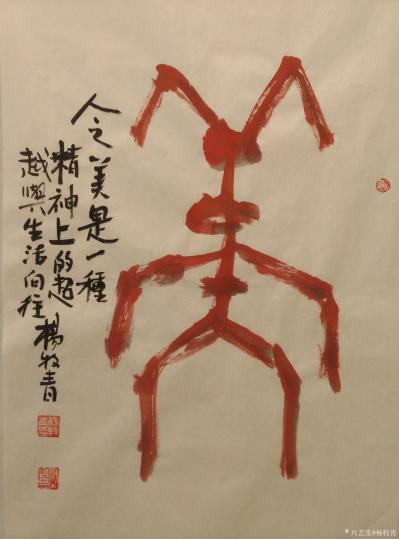 美
人之美是一種
精神上的超
越與生活向往 楊牧青
兴艺堂@杨牧青